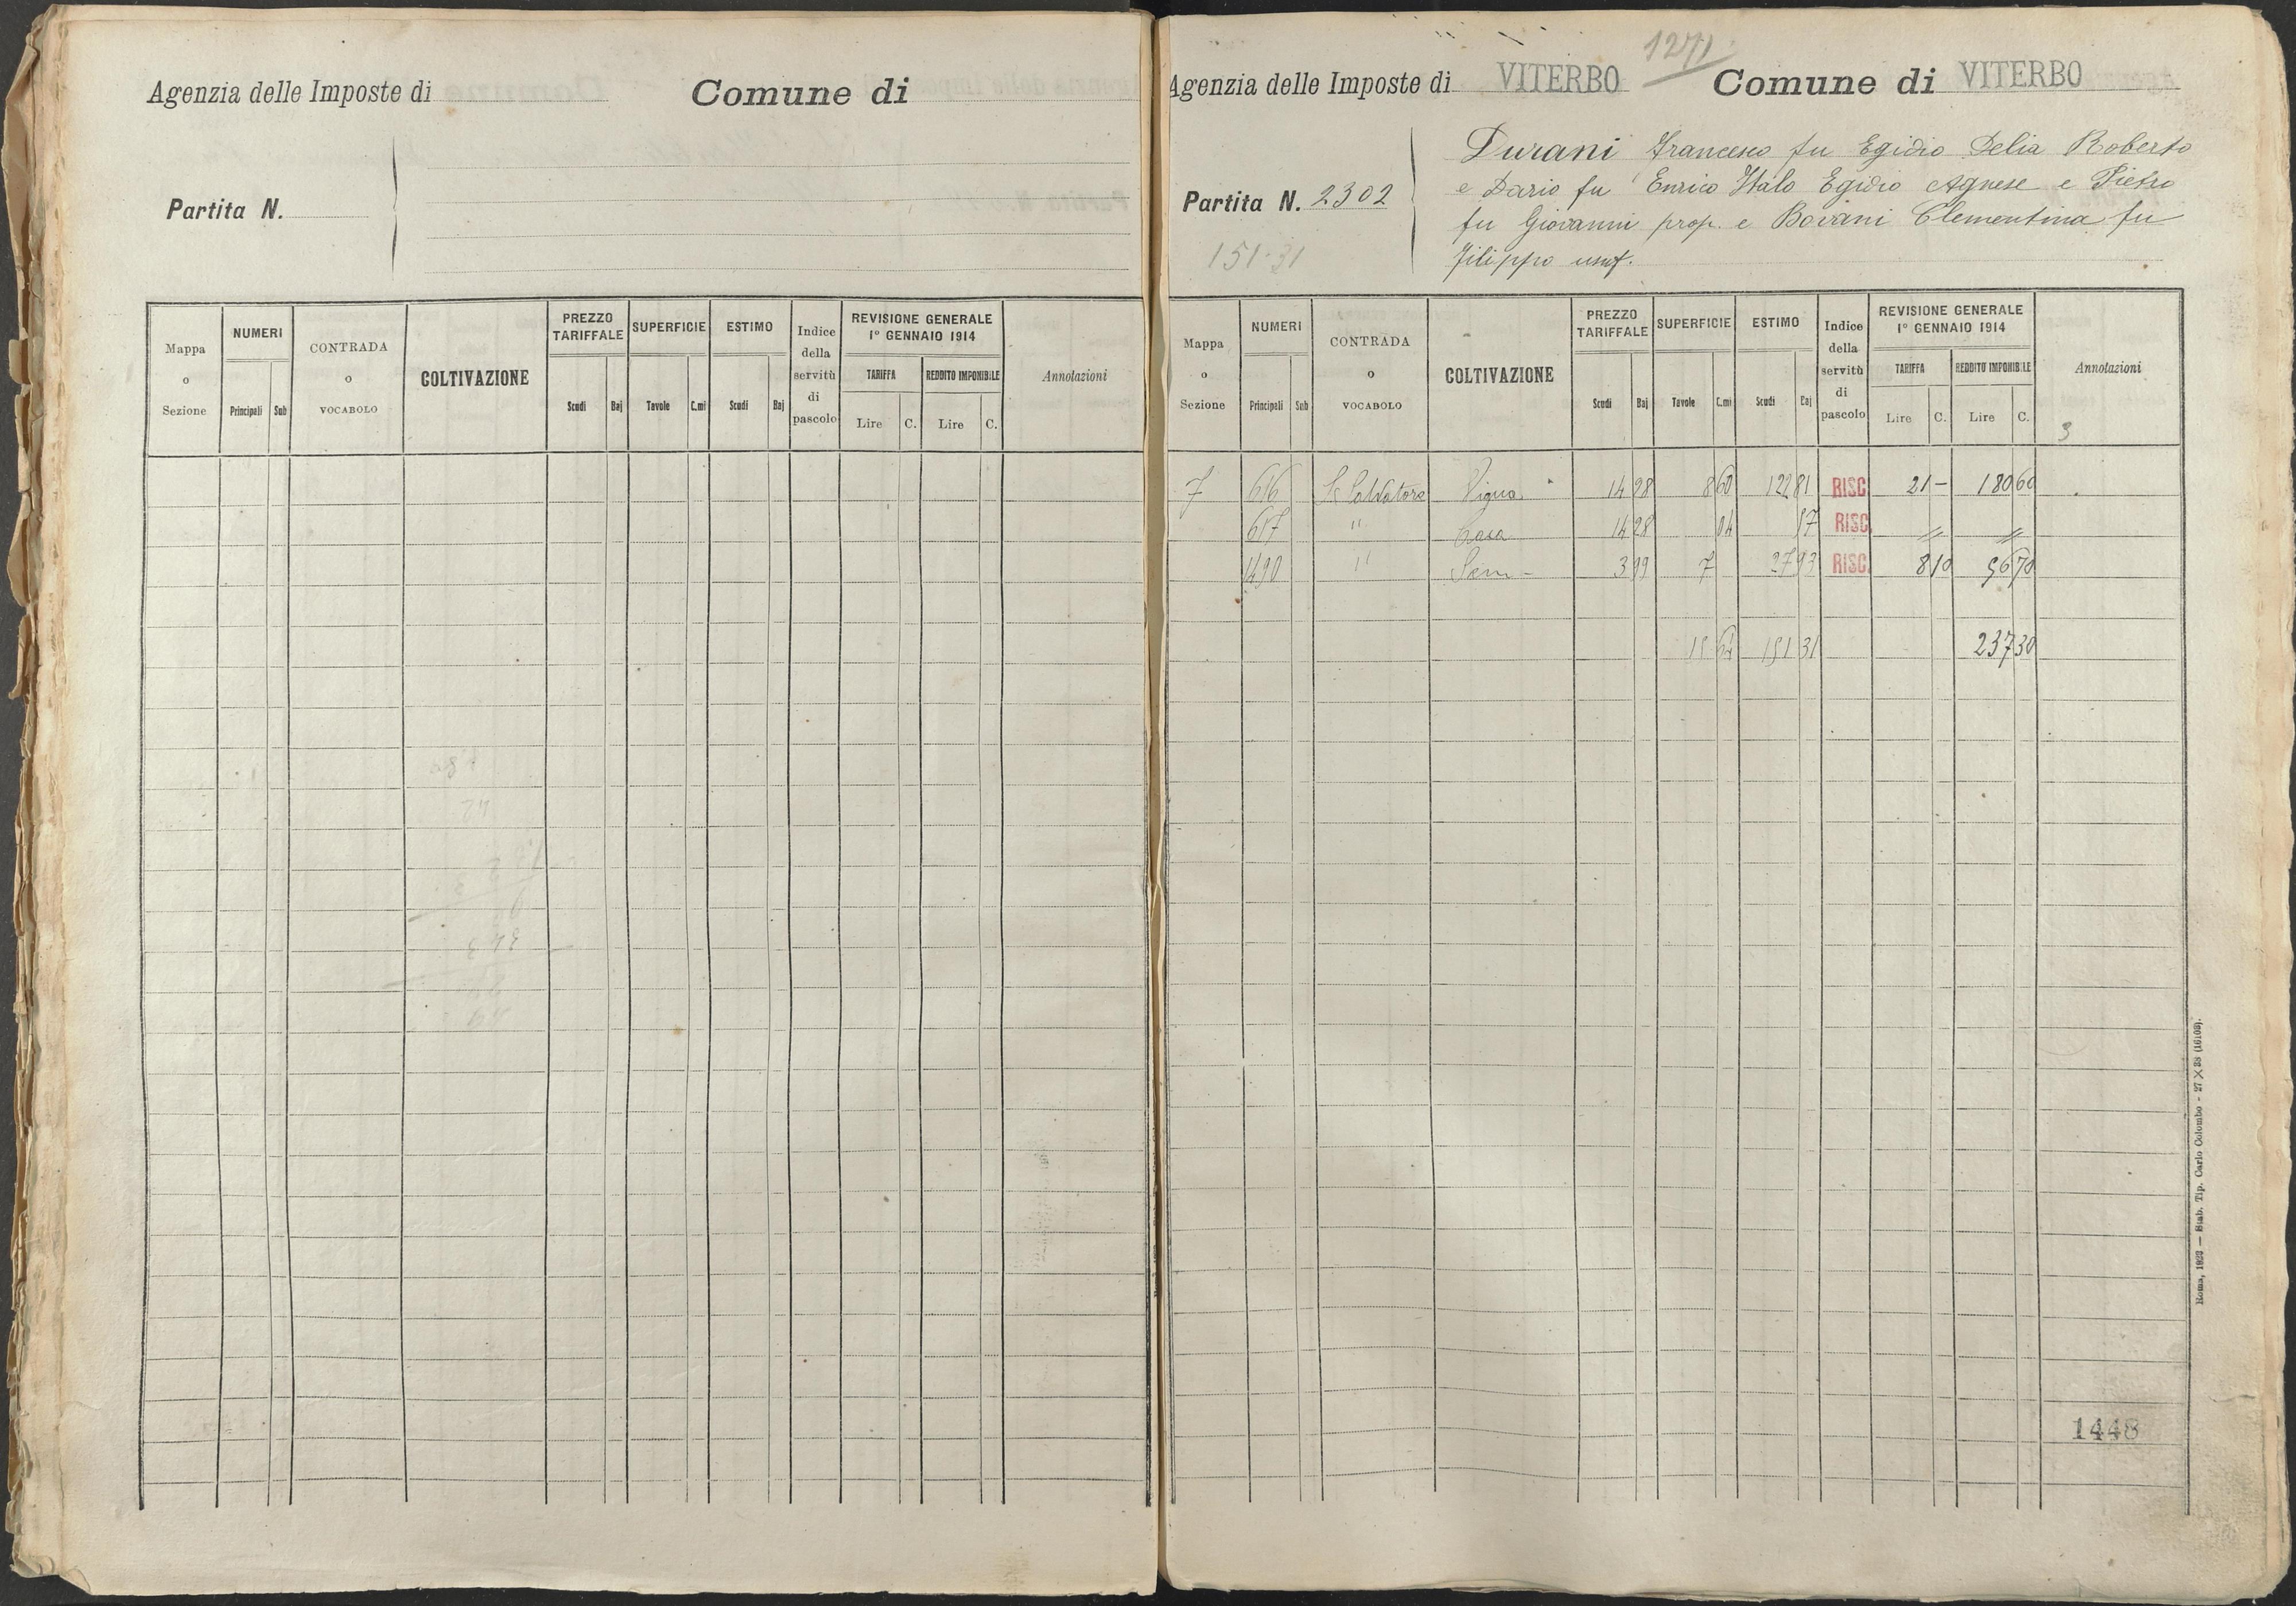 Agenzia delle Imposte di
Comune di
Partita N.
Mappa o Sezione
NUMERI
Principali Sub
CONTRADA o VOCABOLO
COLTIVAZIONE
PREZZO TARIFFALE
Scudi Baj
SUPERFICIE
Tavole C.mi
ESTIMO
Scudi Baj
Indice della servitù di pascolo
REVISIONE GENERALE
1° GENNAIO 1914
TARIFFA
Lire C.
REDDITO IMPONIBILE
Lire C.
Annotazioni
1271
Agenzia delle Imposte di VITERBO Comune di VITERBO
Partita N. 2302
151.31
Durani Francesco fu Egidio Delia Roberto
e Dario fu Enrico Italo Egidio Agnese e Pietro
fu Giovanni prop. e Boirani Clementina fu
Filippo usuf.
Mappa o Sezione
NUMERI
Principali Sub
CONTRADA o VOCABOLO
COLTIVAZIONE
PREZZO TARIFFALE
Scudi Baj
SUPERFICIE
Tavole C.mi
ESTIMO
Scudi Baj
Indice della servitù di pascolo
REVISIONE GENERALE
1° GENNAIO 1914
TARIFFA
Lire C.
REDDITO IMPONIBILE
Lire C.
Annotazioni
3
7 616 S Salvatore Vigna 14 28 8 60 122 81 RISC 21 - 180 60
617 " Casa 14 28 04 57 RISC " "
1490 " Sem - 3 99 7 27 93 RISC. 8 10 56 70
15 64 151 31 237 30
1448
Roma, 1923 — Stab. Tip. Carlo Colombo - 27 X 38 (16103).